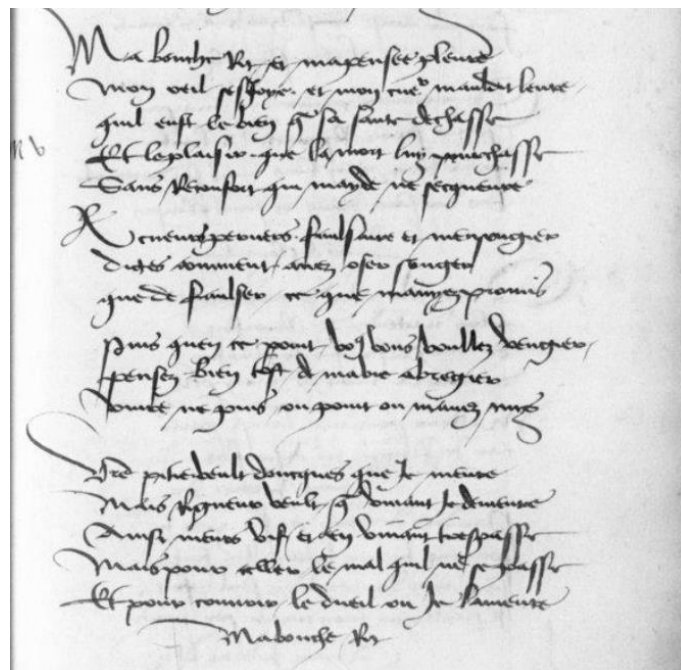 Ma bouche Rit et ma pensee pleure
Mon oeil sesJoye et mon cueur mauldit leure
quil eust le bien q sa sante dechasse
Et le plaisir que la mort luy pourchasse
Sans Reconfort qui mayde ne secqueure
A cueur pervers faulsaire et mensongier
dictes comment avez ose songer
que de faulser ce que mavez promis
puis quen ce point vous voullez vengier
pensez bien tost de ma vie abregier
vivre ne puis ou point ou mavez mys
Vre pitie veult doncques que Je meure
Mais Rigueur veult q vivant Je demeure
Ainsi meurs vif et en vivant trespasse
Mais pour celler le mal qui ne se passe
Et pour couvrir le dueil ou Je lameure
Ma bouche Rit